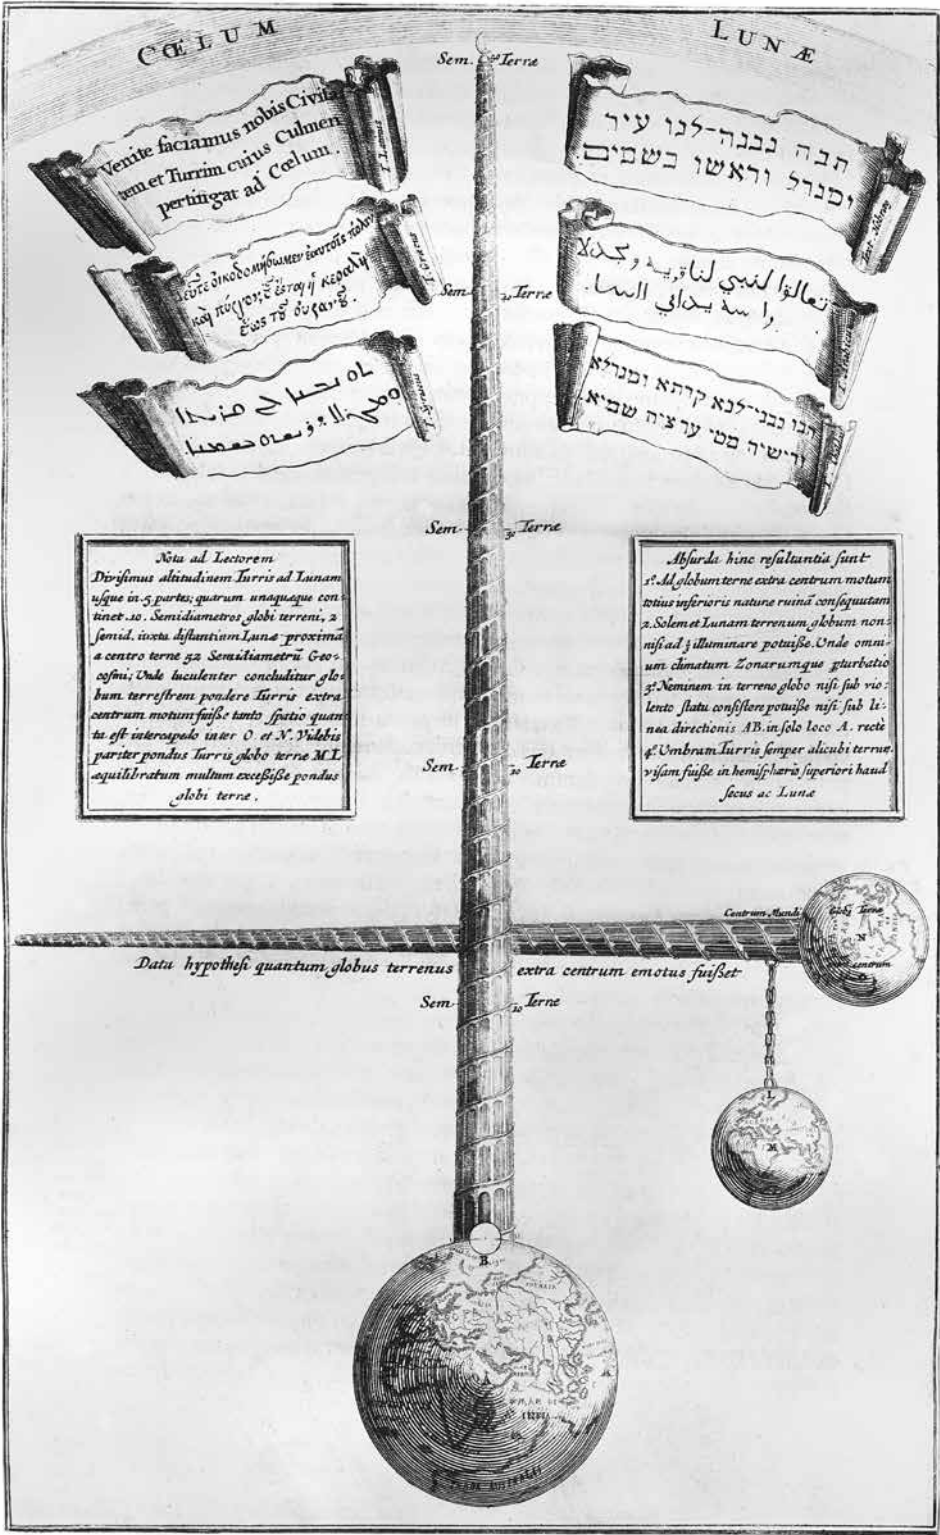 CŒLUM
LUNÆ
Sem. Terræ
Venite faciamus nobis Civita
tem et Turrim cuius Culmen
pertingat ad Cœlum.
תבה נבנה-לנו עיר
ומגדל וראשו בשמים.
Δεῦτε οἰκοδομήσωμεν ἑαυτοῖς πόλιν
καὶ πύργον, οὗ ἔσται ἡ κεφαλὴ
ἕως τοῦ οὐρανοῦ.
Sem. Terræ
הבו נבני-לנא קרתא ומגדלא
ורישיה מטי ער ציה שמיא.
Sem. 30 Terræ
Nota ad Lectorem
Divisimus altitudinem Turris ad Lunam
usque in 5 partes; quarum unaquæque con-
tinet .10. Semidiametros globi terreni, 2
semid. iuxta distantium Lunæ proximã
a centro terræ 52 Semidiametrũ Geo-
cosmi; Unde luculenter concluditur glo-
bum terrestrem pondere Turris extra
centrum motum fuiße tanto spatio quan-
ta est intercapedo inter O. et N. Videbis
pariter pondus Turris globo terræ M.L
æquilibratum multum exceßiße pondus
globi terræ.
Absurda hinc resultantia sunt
1.º Ad globum terræ extra centrum motum
totius inferioris naturæ ruinã consequutam
2. Solem et Lunam terrenum globum non-
nisi ad ⅓ illuminare potuiße. Unde omni-
um climatum Zonarumque pturbatio
3.º Neminem in terreno globo nisi sub vio-
lento statu consistere potuiße nisi sub li-
nea directionis AB. in solo loco A. rectè
4.º Umbram Turris semper alicubi terrarũ
visam fuiße in hemisphærio superiori haud
secus ac Lunæ
Sem. 20 Terræ
Centrum Mundi
Globꝰ Terræ
N
centrum
O
Data hypothesi quantum globus terrenus extra centrum emotus fuißet
Sem. 10 Terræ
L
M
B
A